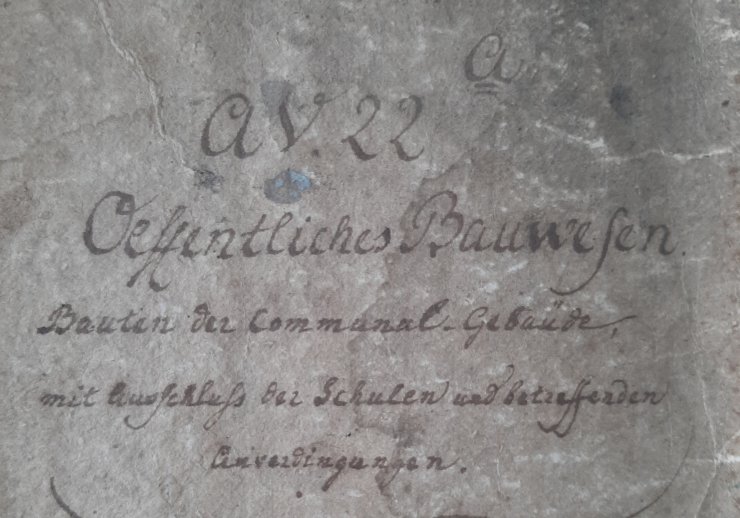 a
AV. 22
Oeffentliches Bauwesen.
Bauten der Communal-Gebäude,
mit Ausschluss der Schulen und betreffenden
Anverdingungen.